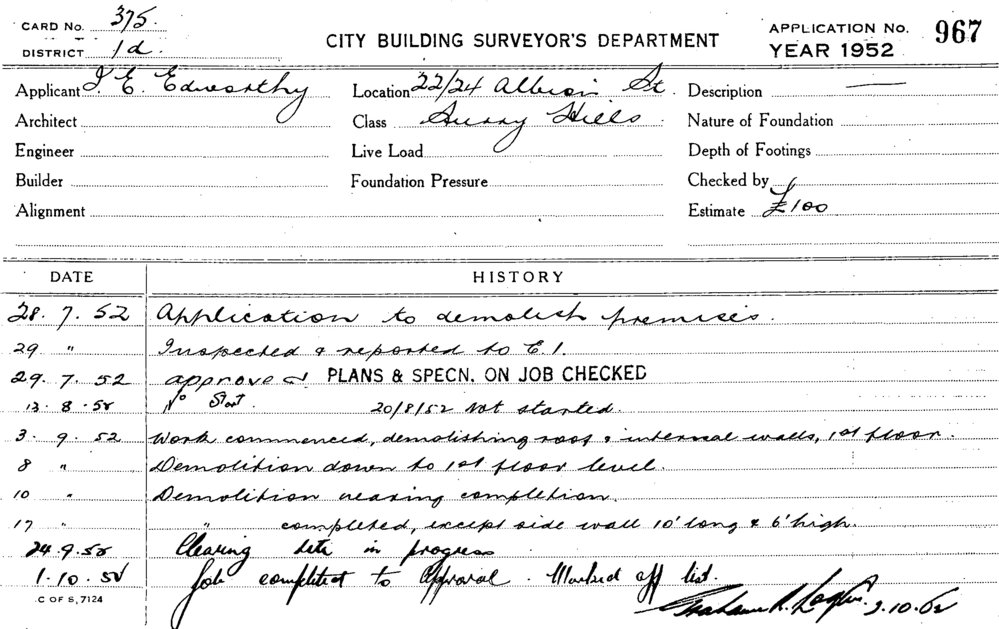 CARD No. 375.
DISTRICT 1d.
CITY BUILDING SURVEYOR'S DEPARTMENT
APPLICATION No. 967
YEAR 1952
Applicant J. E. Edworthy Location 22/24 Albion St. Description —
Architect Class Surry Hills Nature of Foundation
Engineer Live Load Depth of Footings
Builder Foundation Pressure Checked by
Alignment Estimate £100
DATE HISTORY
28. 7. 52 Application to demolish premises.
29 " Inspected & reported to E.I.
29. 7. 52 approved. PLANS & SPECN. ON JOB CHECKED
13. 8. 52 No Start. 20/8/52 Not started.
3. 9. 52 Work commenced, demolishing roof & internal walls, 1st floor.
8 " Demolition down to 1st floor level.
10 " Demolition nearing completion.
17 " " completed, except side wall 10' long & 6' high.
24. 9. 52 Clearing site in progress
1. 10. 52 Job completed to approval. Marked off list.
C OF S, 7124
Graham R. 2.10.52